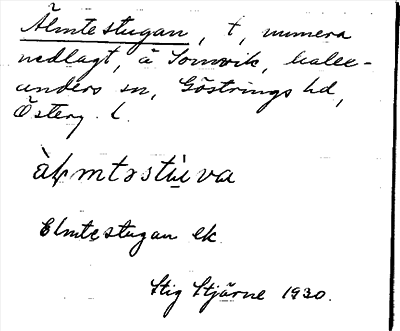 Älmtestugan, t, numera
nedlagt, å Sonvik, kalee-
anders sn, Göstrings hd,
Österg. l.
àɫmtəstùva
Elmtestugan ek.
Stig Stjärne 1930.